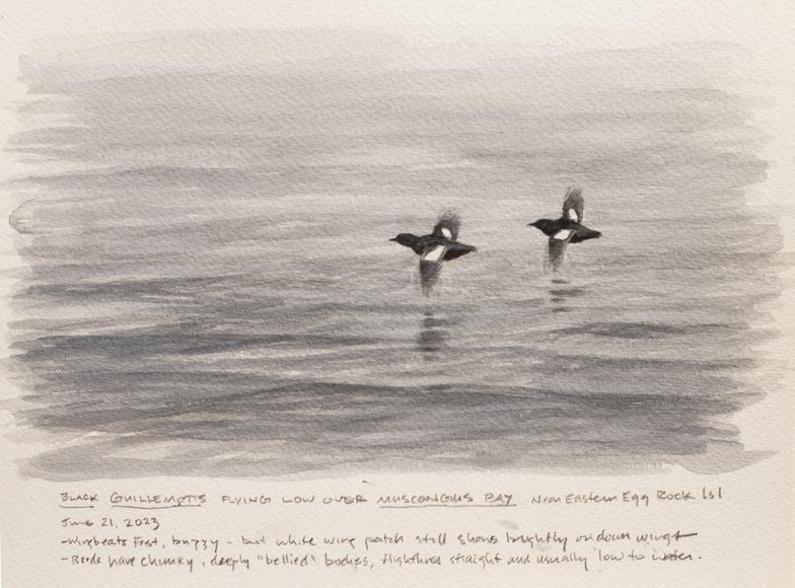 BLACK GUILLEMOTS FLYING LOW OVER MUSCONGUS BAY Near Eastern Egg Rock Isl
June 21, 2023
-Wingbeats Fast, buzzy - but white wing patch still shows brightly on down wings
-Birds have chunky, deeply "bellied" bodies, flightlines straight and usually low to water.